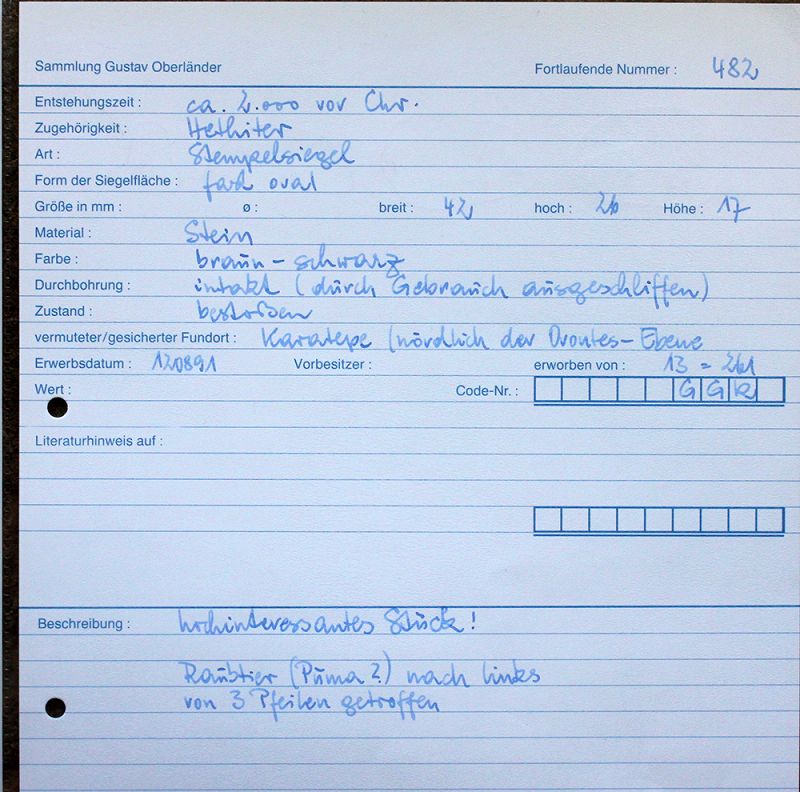 Sammlung Gustav Oberländer Fortlaufende Nummer : 482
Entstehungszeit : ca. 2.000 vor Chr.
Zugehörigkeit : Hethiter
Art : Stempelsiegel
Form der Siegelfläche : fast oval
Größe in mm : ø : breit : 42 hoch : 26 Höhe : 17
Material : Stein
Farbe : braun - schwarz
Durchbohrung : intakt (durch Gebrauch ausgeschliffen)
Zustand : bestoßen
vermuteter/gesicherter Fundort : Karatepe (nördlich der Orontes-Ebene
Erwerbsdatum : 120891 Vorbesitzer : erworben von : 13 = 261
Wert : Code-Nr. : G G R
Literaturhinweis auf :
Beschreibung : hochinteressantes Stück!
Raubtier (Puma?) nach links
von 3 Pfeilen getroffen